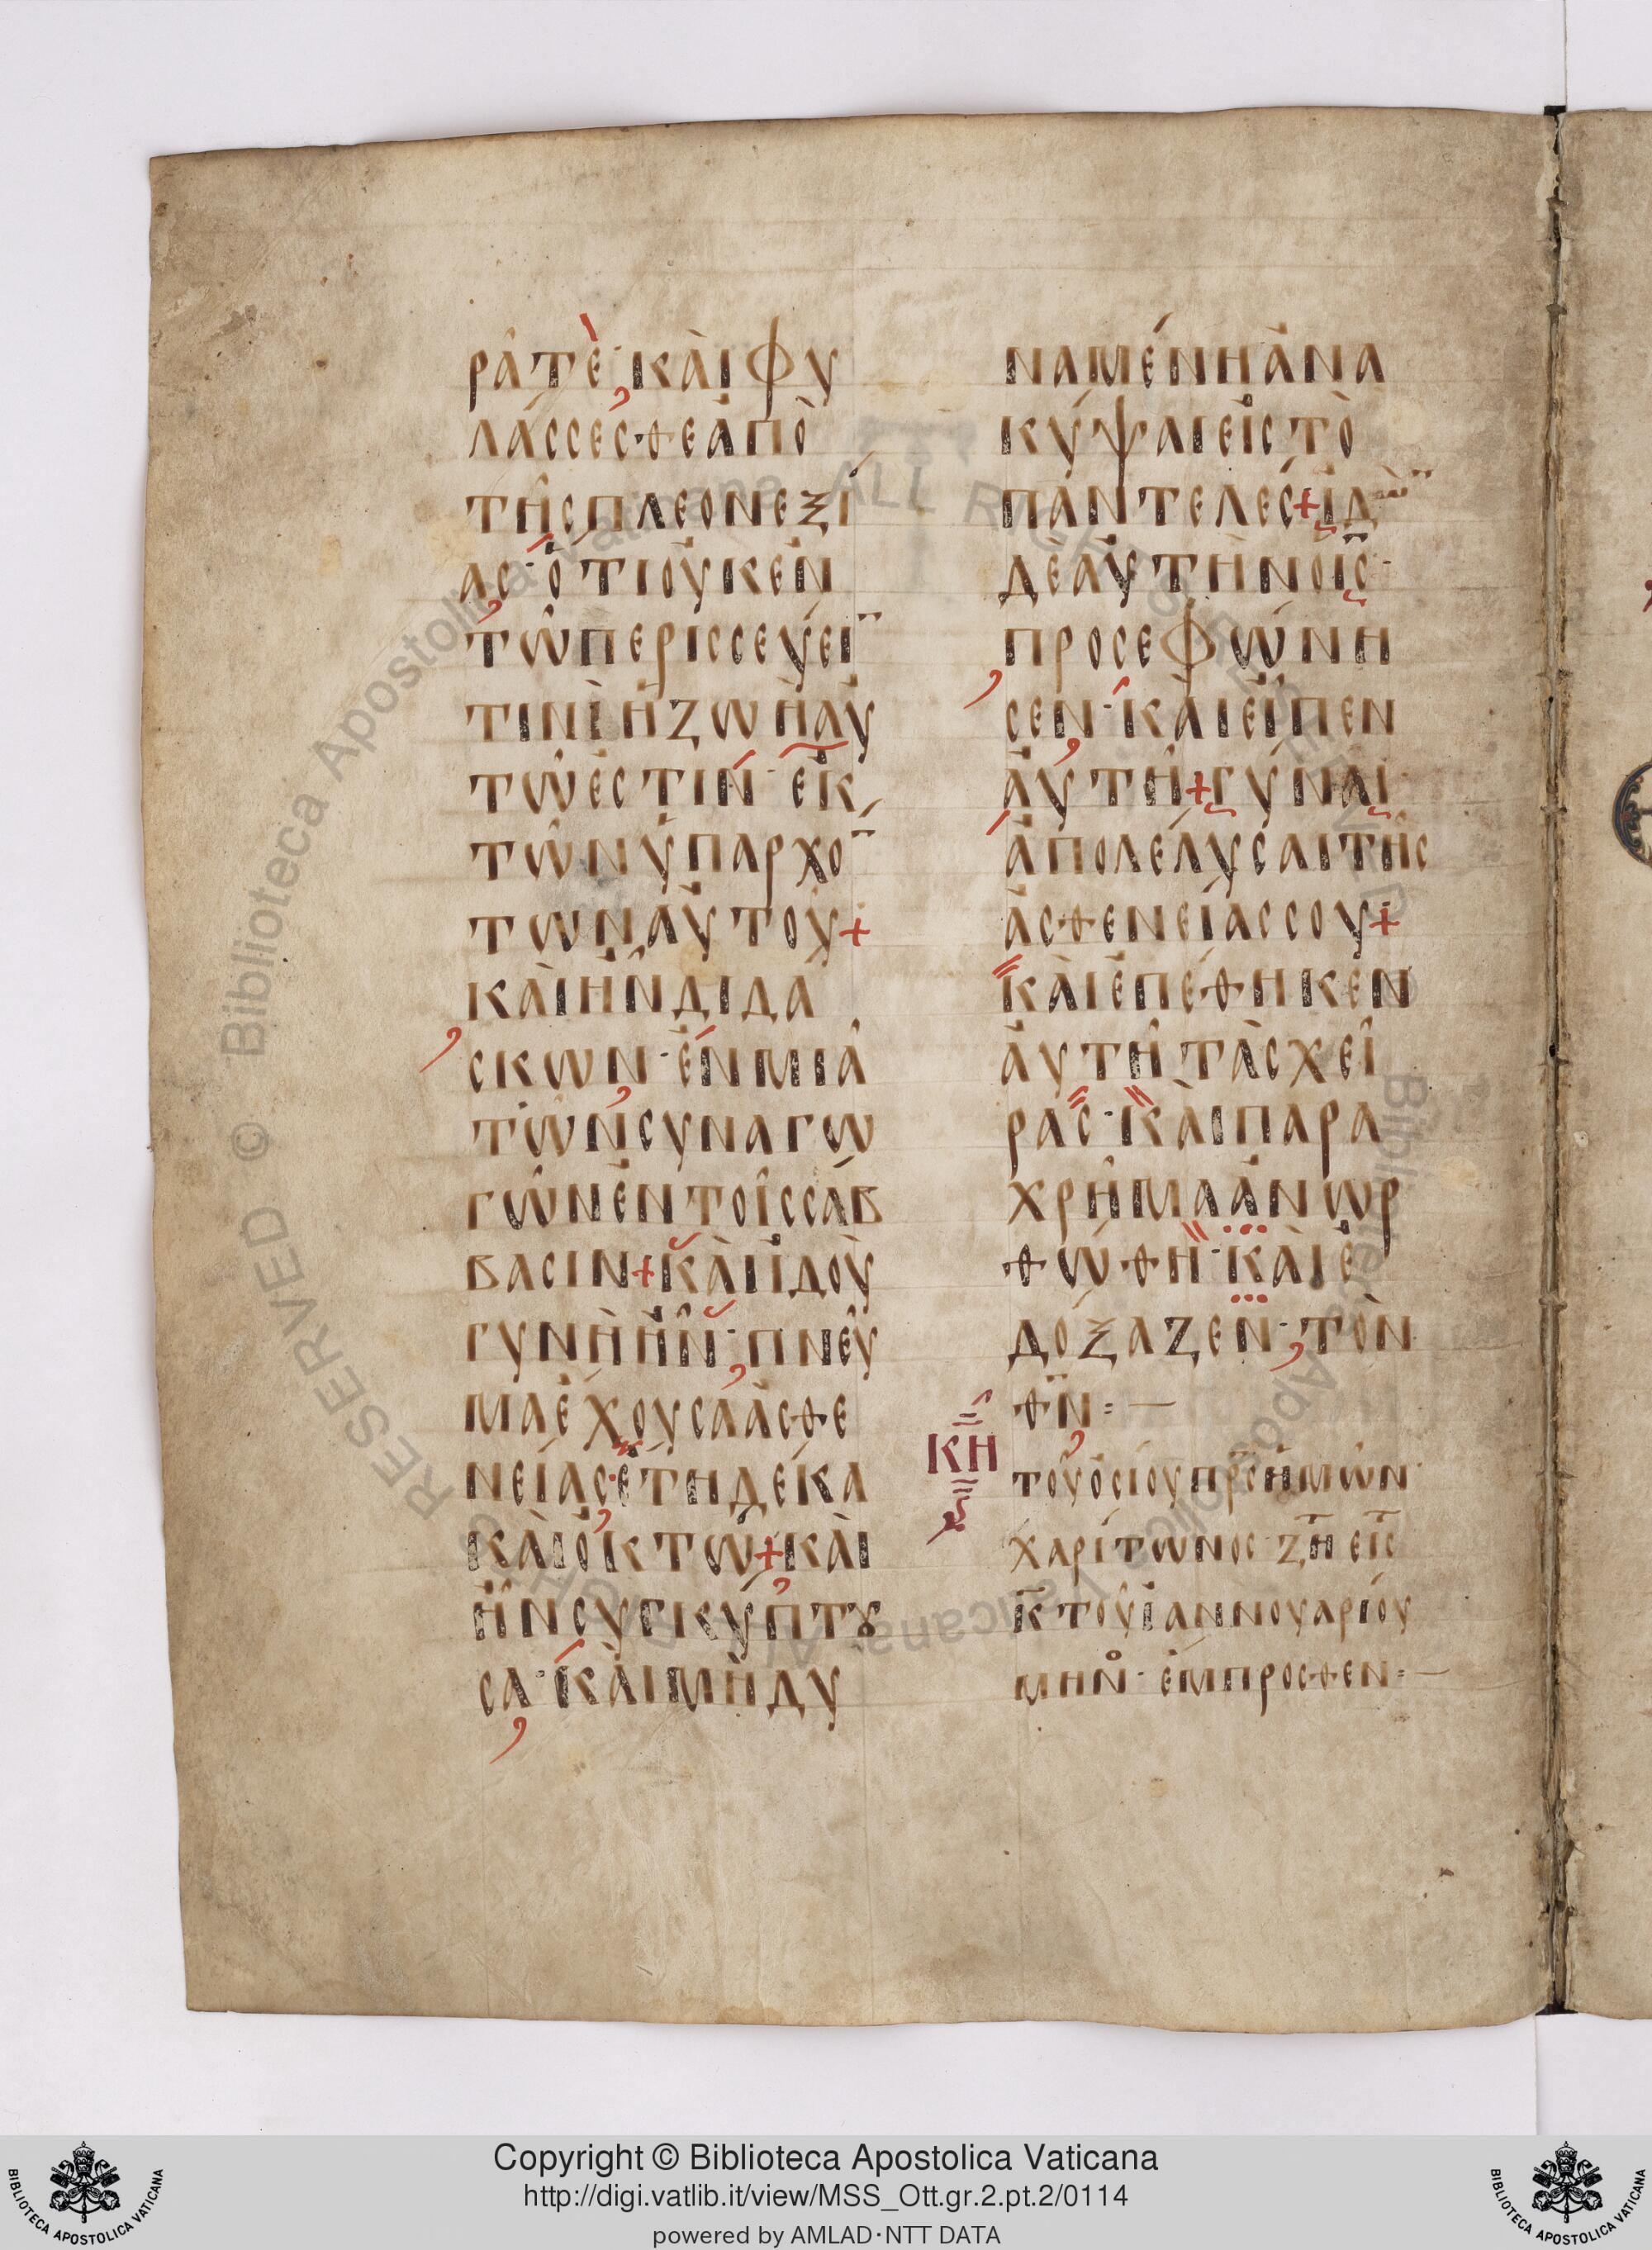 ρᾶτὲ· καὶ φυ
λάσσεσθε ἀπὸ
τῆς πλεονεξί
ας· ὅτι οὐκ ἐν
τῶ περισσεύειν
τινὶ ἡ ζωὴ αὐ
τῶ ἐστίν· ἐκ
τῶν ὑπαρχό
των αὐτοῦ+
καὶ ἦν διδά
σκων· ἐν μιᾶ
τῶν συναγω
γῶν ἐν τοῖς σάβ
βασιν+ καὶ ἰδοὺ
γυνὴ ἦν· πνεῦ
μα ἔχουσα ἀσθε
νείας· ἔτη δέκα
καὶ ὀκτώ+ καὶ
ἦν συγκύπτȣ
σα· καὶ μὴ δυ
ναμένη ἀνα
κύψαι εἰς τὸ
παντελές+ ἰδὼν
δὲ αὐτὴν ὁ ἰς·
προσεφώνη
σεν· καὶ εἶπεν
αὐτῆ+ γύναι
ἀπολέλυσαι τῆς
ἀσθενείας σου+
καὶ ἐπέθηκεν
αὐτῆ τὰς χεῖ
ρας· καὶ παρα
χρῆμα ἀνωρ
θώθη· καὶ ἐ
δόξαζεν· τὸν
θν=—
ΚΗ
τοῦ ὁσίου πρς ἡμῶν
χαρίτωνος ζη εἰς
κ τοῦ ἰαννουαρίου
μην· ἔμπροσθεν=—
Copyright © Biblioteca Apostolica Vaticana
http://digi.vatlib.it/view/MSS_Ott.gr.2.pt.2/0114
powered by AMLAD·NTT DATA
BIBLIOTECA APOSTOLICA VATICANA
BIBLIOTECA APOSTOLICA VATICANA